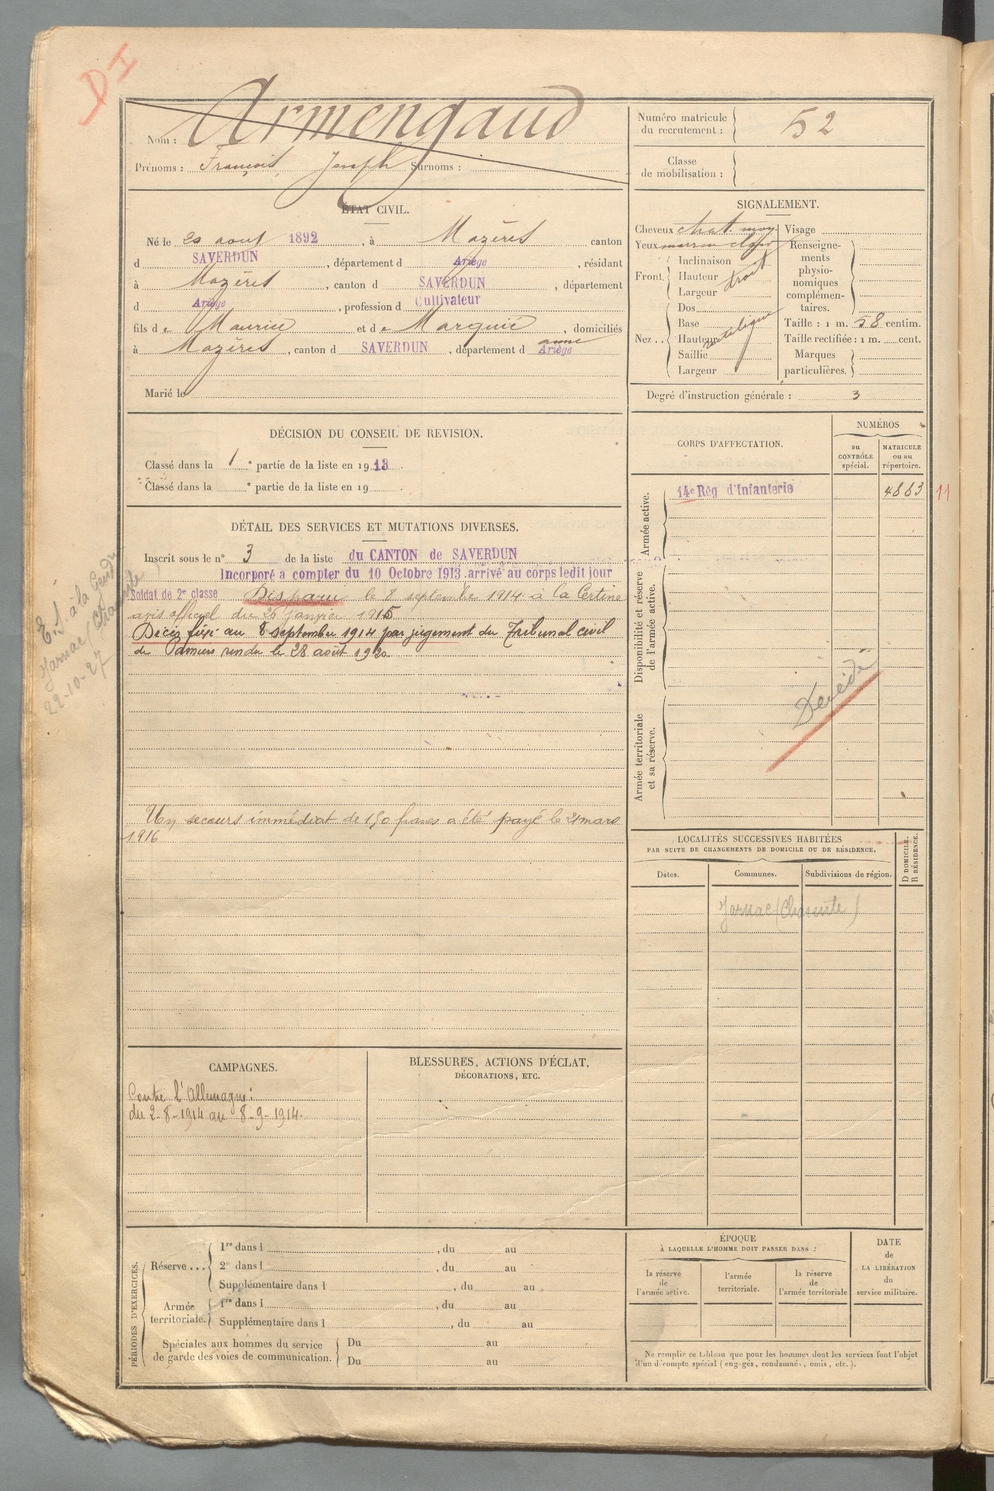 DI
Nom : Armengaud
Prénoms : François, Joseph Surnoms :
Numéro matricule du recrutement : 52
Classe de mobilisation :
ÉTAT CIVIL.
Né le 20 aout 1892, à Mazères canton
d SAVERDUN, département d Ariège, résidant
à Mazères, canton d SAVERDUN, département
d Ariège, profession d Cultivateur
fils de Maurice et de Marquié, domiciliés
à Mazères, canton d SAVERDUN, département d Ariège
Marié le
SIGNALEMENT.
Cheveux chat. moy Visage
Yeux marron clair Renseigne-
ments
physio-
nomiques
complémen-
taires.
Front. Inclinaison
Hauteur droit
Largeur
Nez .. Dos
Base
Hauteur rectiligne
Saillie
Largeur
Taille : 1 m. 58 centim.
Taille rectifiée : 1 m. cent.
Marques
particulières.
Degré d'instruction générale : 3
DÉCISION DU CONSEIL DE REVISION.
Classé dans la 1e partie de la liste en 1913.
Classé dans la e partie de la liste en 19
CORPS D'AFFECTATION.
NUMÉROS
au CONTRÔLE spécial.
MATRICULE ou au répertoire.
Armée active.
14e Rég d'Infanterie 4863 11
Disponibilité et réserve de l'armée active.
Armée territoriale et sa réserve.
Décédé
DÉTAIL DES SERVICES ET MUTATIONS DIVERSES.
Inscrit sous le n° 3 de la liste du CANTON de SAVERDUN
Incorporé a compter du 10 Octobre 1913 arrivé au corps ledit jour
Soldat de 2e classe Disparu le 8 septembre 1914 à la Certine
avis officiel du 26 Janvier 1915
Décès fixé au 8 septembre 1914 par jugement du Tribunal civil
de Pamiers rendu le 28 août 1920.
Un secours immédiat de 150 francs a été payé le 21 mars
1916
Jarnac (Charente)
22-10-27
LOCALITÉS SUCCESSIVES HABITÉES
PAR SUITE DE CHANGEMENTS DE DOMICILE OU DE RÉSIDENCE.
D DOMICILE.
R RÉSIDENCE.
Dates. Communes. Subdivisions de région.
Jarnac (Charente)
CAMPAGNES.
Contre l'Allemagne :
du 2-8-1914 au 8-9-1914.
BLESSURES, ACTIONS D'ÉCLAT,
DÉCORATIONS, ETC.
PÉRIODES D'EXERCICES.
Réserve ... 1re dans l , du au
2e dans l , du au
Supplémentaire dans l , du au
Armée territoriale. 1re dans l , du au
Supplémentaire dans l , du au
Spéciales aux hommes du service
de garde des voies de communication. Du au
Du au
ÉPOQUE
À LAQUELLE L'HOMME DOIT PASSER DANS :
la réserve de l'armée active.
l'armée territoriale.
la réserve de l'armée territoriale
DATE
de
LA LIBÉRATION
du
service militaire.
Ne remplir ce tableau que pour les hommes dont les services font l'objet
d'un décompte spécial (engagés, condamnés, omis, etc.).